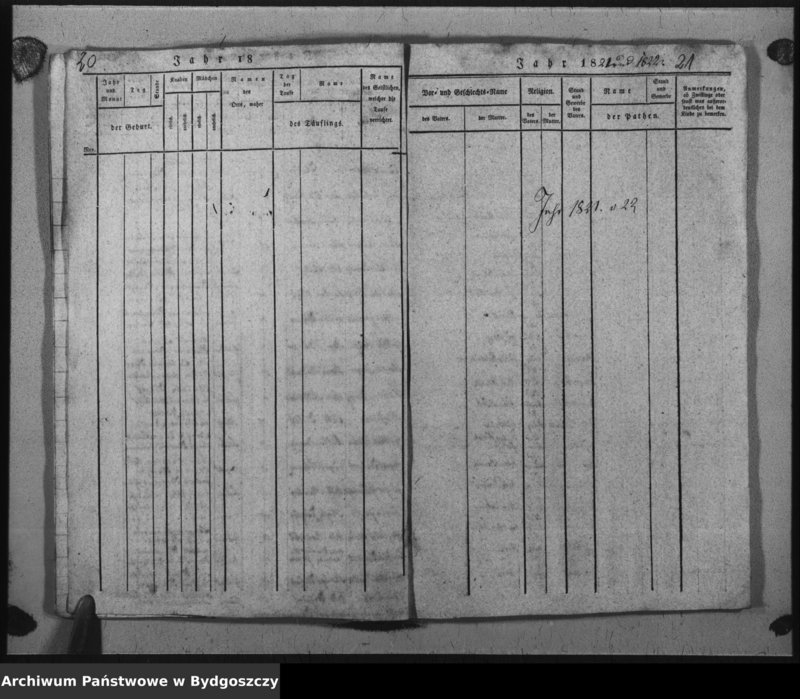 20
Jahr 18
Jahr 1821 und 1822. 21
Nro.
Jahr und Monat
Tag
Stunde
der Geburt.
Knaben
Mädchen
Namen des Orts, woher
Tag der Taufe
Name
des Täuflings.
Name des Geistlichen, welcher die Taufe verrichtet.
Vor- und Geschlechts-Name
des Vaters.
der Mutter.
Religion.
des Vaters.
der Mutter.
Stand und Gewerbe des Vaters.
Name
Stand und Gewerbe
der Pathen.
Anmerkungen, ob Zwillinge oder sonst was außerordentliches bei dem Kinde zu bemerken.
Jahr 1821. u 22
Archiwum Państwowe w Bydgoszczy